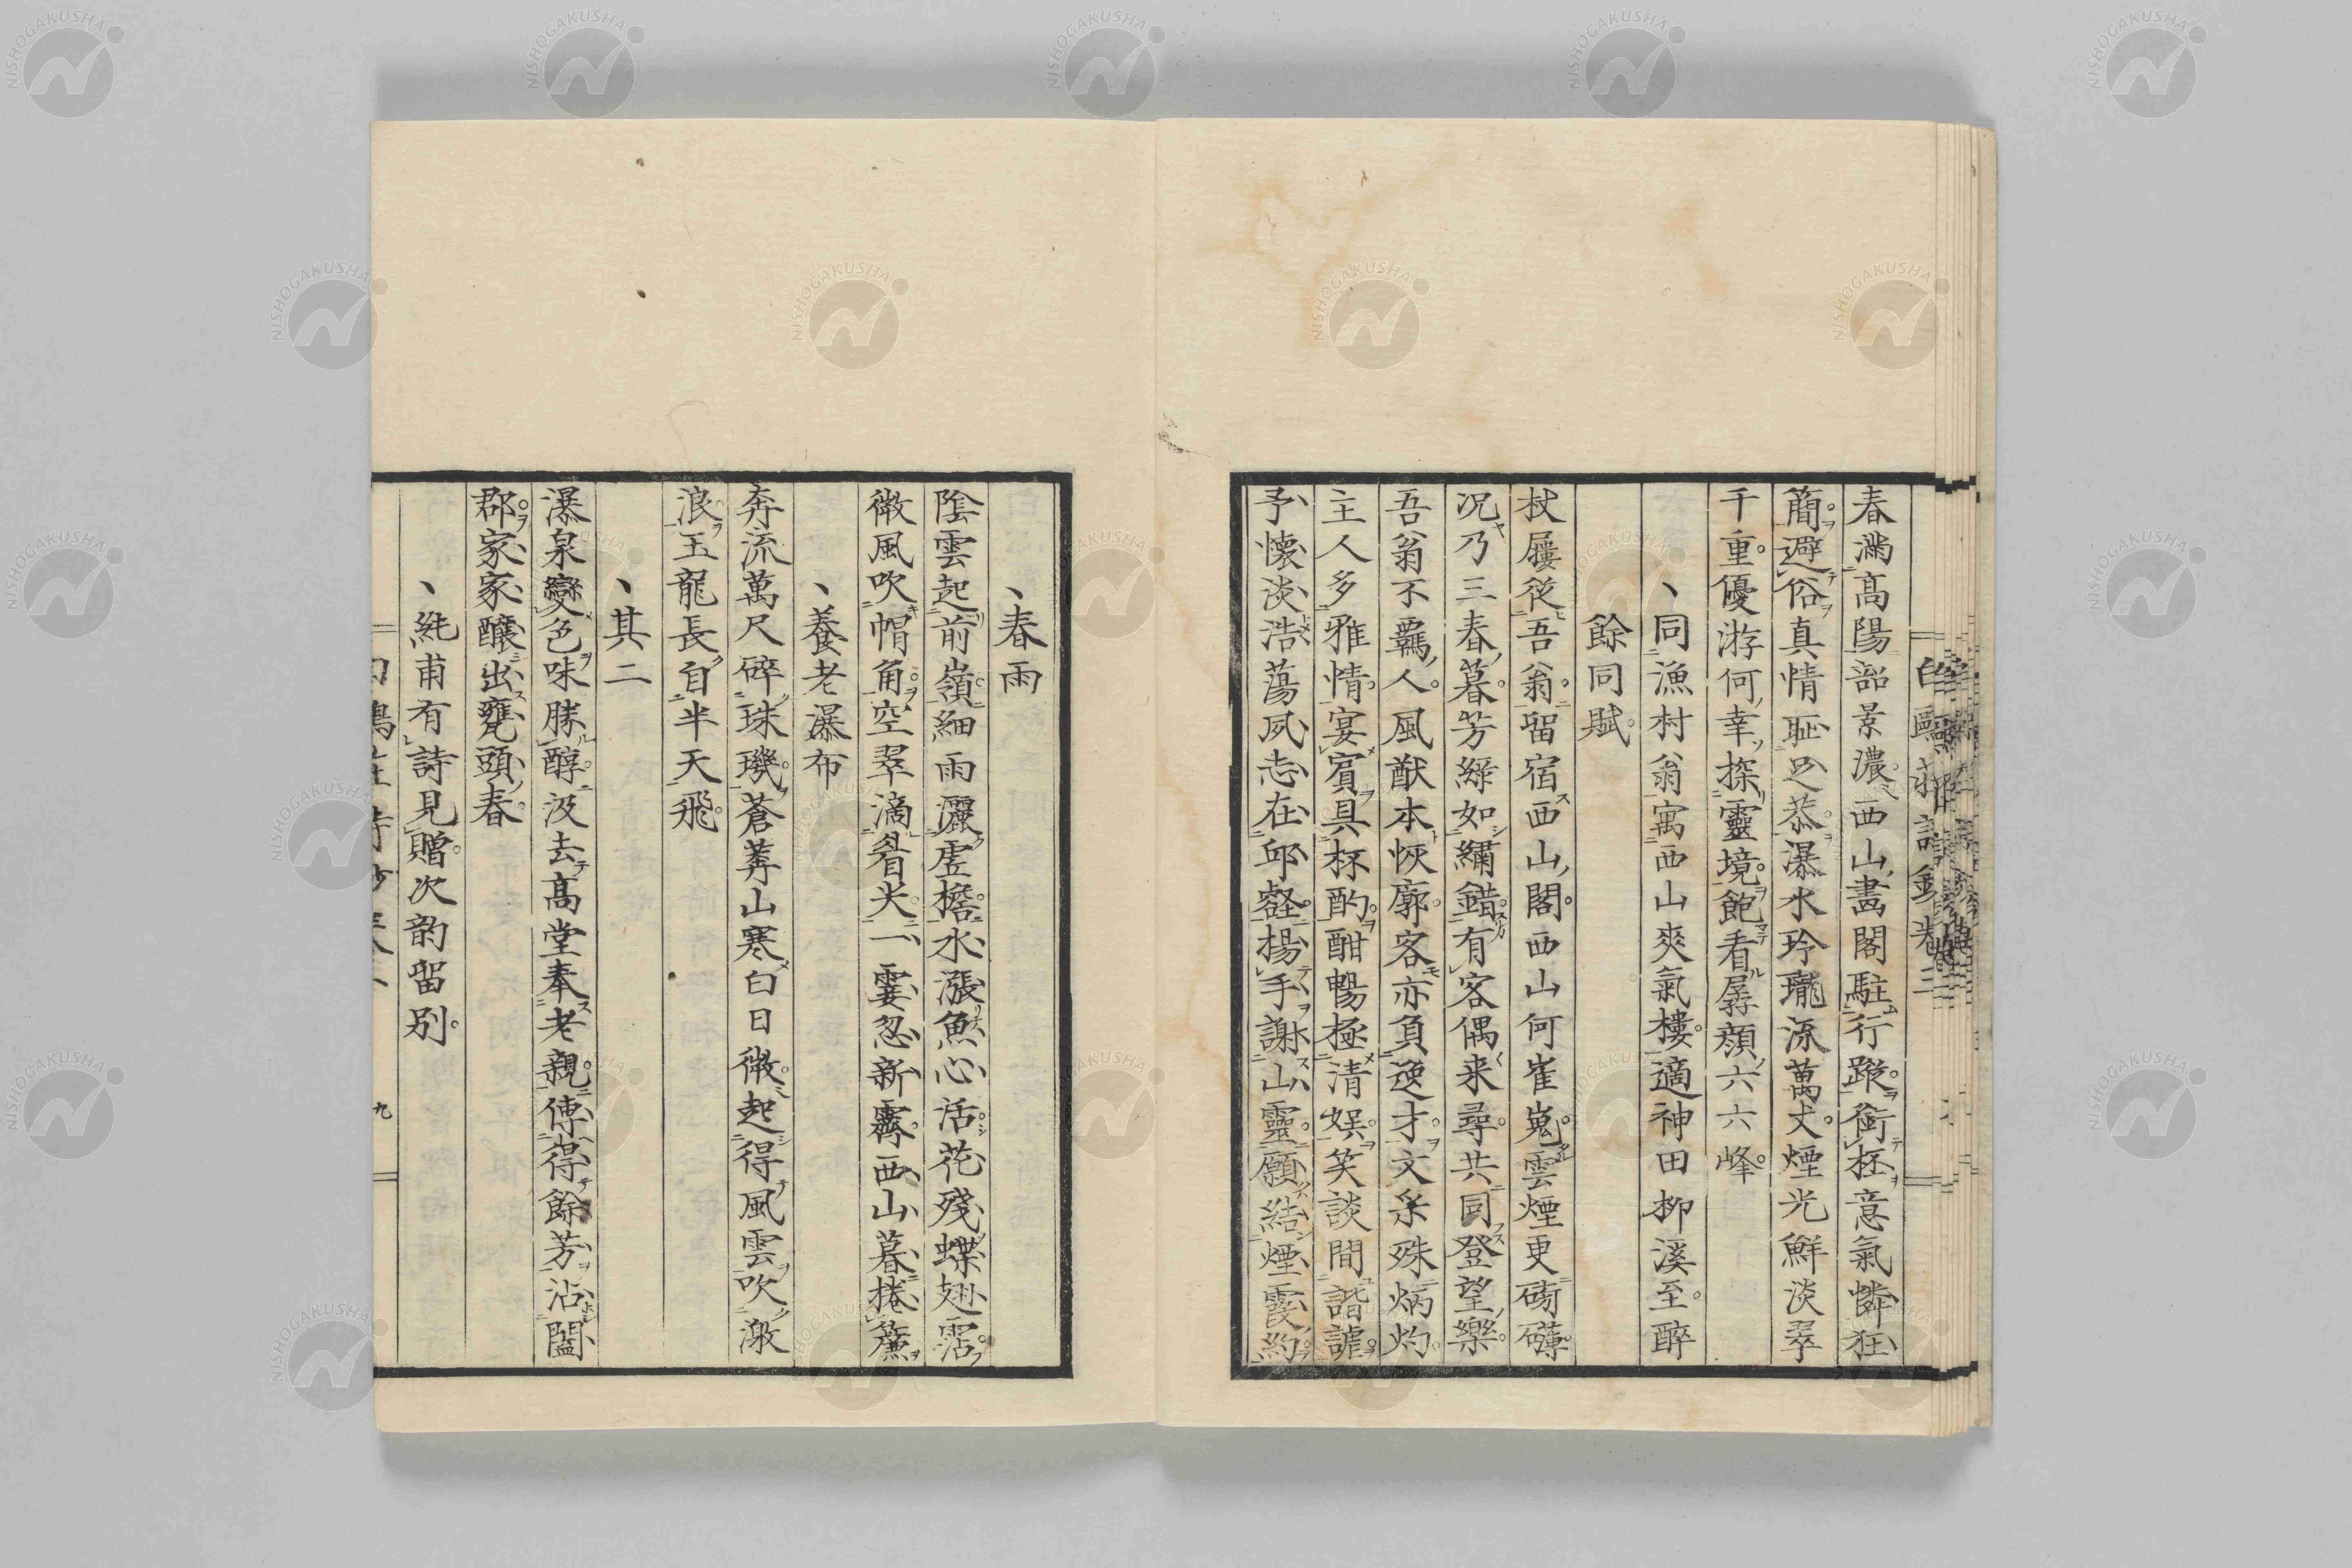 春滿高陽韶景濃西山畵閣駐行蹤銜杯意氣憐狂
簡避俗眞情恥足恭瀑水玲瓏流萬丈煙光鮮淡翠
千重優游何幸探靈境飽看孱顏六六峰
同漁村翁寓西山爽氣樓適神田柳溪至醉
餘同賦
杖屨從吾翁留宿西山閣西山何崔嵬雲煙更磅礴
况乃三春暮芳綠如繡錯有客偶來尋共同登望樂
吾翁不羈人風猷本恢廓客亦負逸才文采殊炳灼
主人多雅情宴賓具杯酌酣暢極清娯笑談間諧謔
予懷淡浩蕩夙志在邱壑揚手謝山靈願結煙霞約
白鷗莊詩鈔卷三
春雨
陰雲起前嶺細雨灑虛檐水漲魚心活花殘蝶翅霑
微風吹帽角空翠滴眉尖一霎忽新霽西山暮捲簾
養老瀑布
奔流萬尺碎珠璣蒼莽山寒白日微起得風雲吹激
浪玉龍長自半天飛
其二
瀑泉變色味勝醇汲去高堂奉老親傳得餘芳沾闔
郡家家釀出甕頭春
純甫有詩見贈次韵留別
九
NISHOGAKUSHA